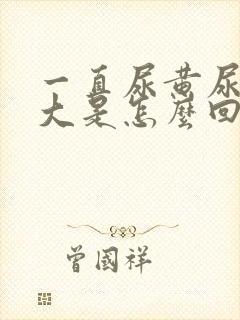 一直尿黄尿
大是怎麽回
曾國祥